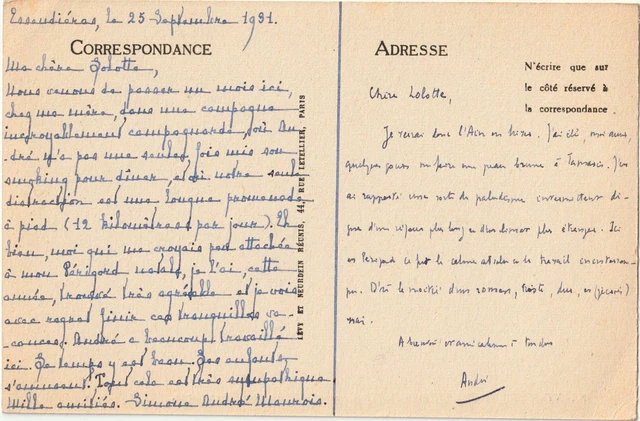 Essendiéras, le 25 Septembre 1931.
CORRESPONDANCE
Ma chère Lolotte,
Nous venons de passer un mois ici,
chez ma mère, dans une campagne
incroyablement campagnarde, où An-
dré n'a pas une seule fois mis son
smoking pour dîner, et où notre seule
distraction est une longue promenade
à pied (12 kilomètres par jour). Eh
bien, moi qui me croyais peu attachée
à mon Périgord natal, je l'ai, cette
année, trouvé très agréable et je vois
avec regret finir ces tranquilles va-
cances. André a beaucoup travaillé
ici. Le temps y est beau. Les enfants
s'amusent. Tout cela est très sympathique
Mille amitiés. Simone André Maurois.
LÉVY ET NEURDEIN RÉUNIS, 44, RUE LETELLIER, PARIS
ADRESSE
N'écrire que sur
le côté réservé à
la correspondance
Chère Lolotte,
Je verrai donc l'Ain en hiver. J'ai été, moi aussi,
quelques jours à Tamaris. J'en
ai rapporté une sorte de paludisme
d'un séjour plus long en des lieux plus étranges. Ici
en Périgord le calme et le travail
D'où la moitié d'un roman, triste, dur, et
vrai.
A bientôt
André